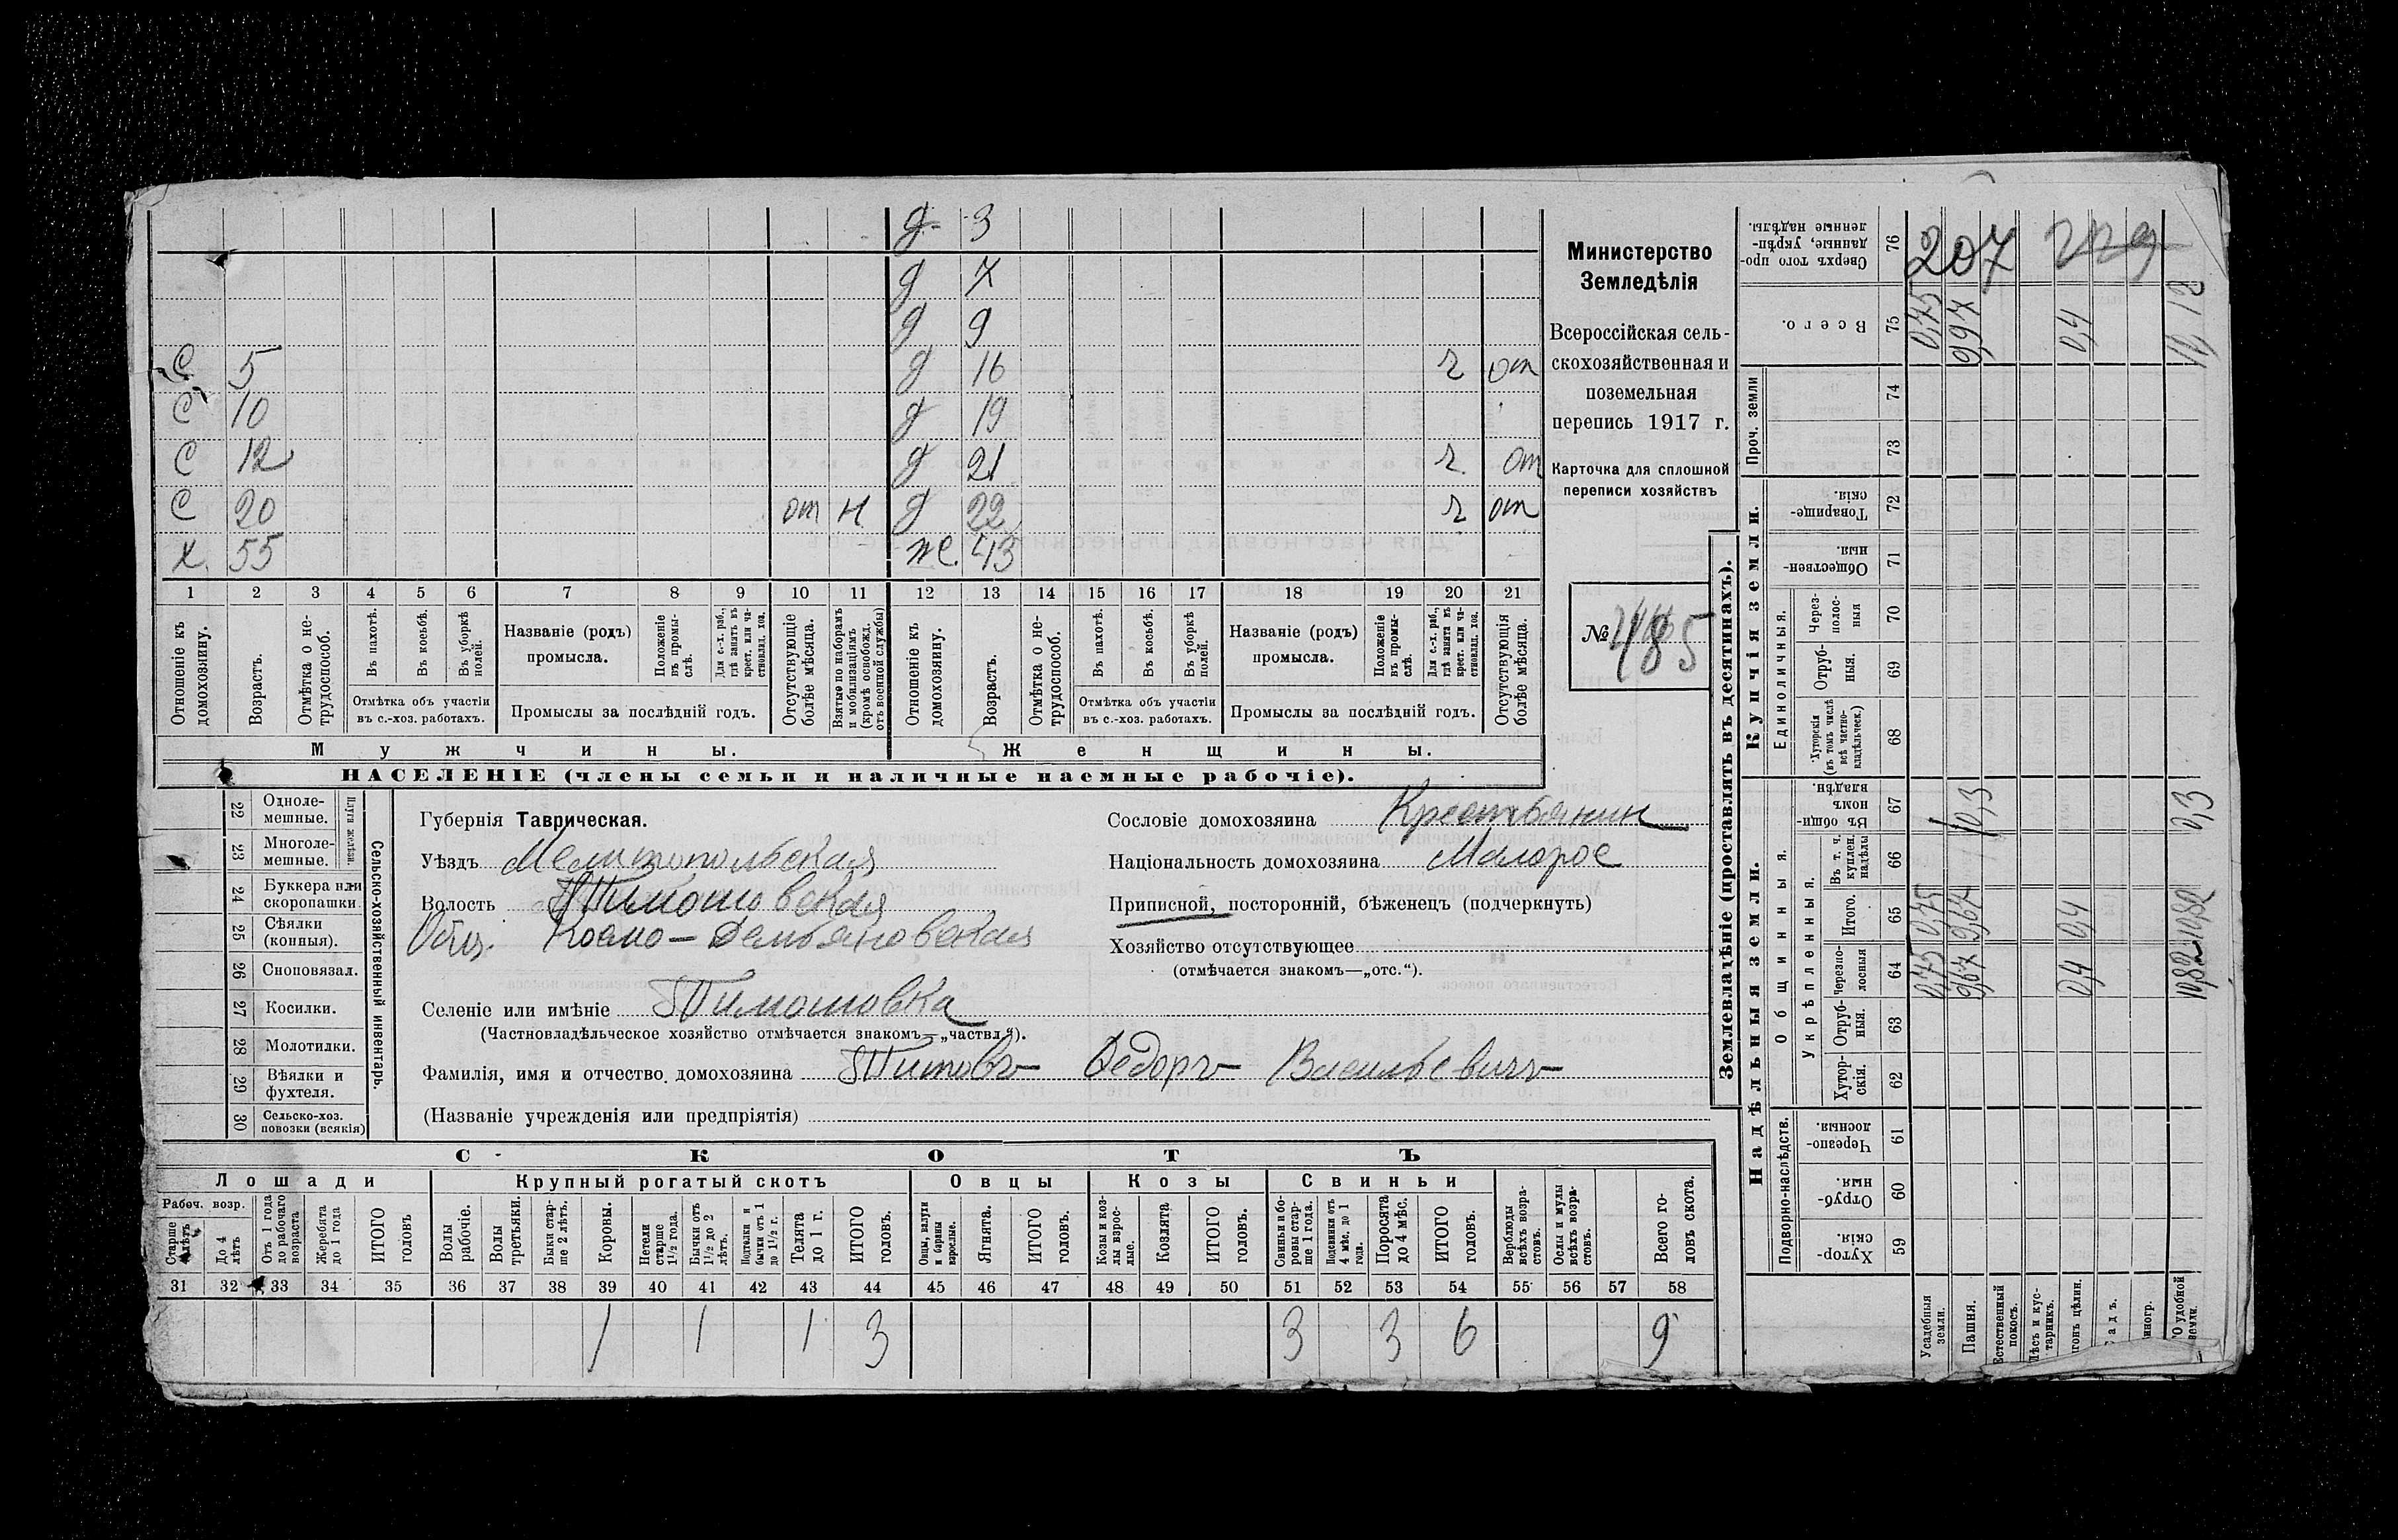 д 3
д 7
д 9
С 5 д 16 г от
С 10 д 19
С 12 д 21 г. от
С 20 от н д 22 г от
х. 55 же. 43
1 2 3 4 5 6 7 8 9 10 11 12 13 14 15 16 17 18 19 20 21
Отношеніе къ домохозяину.
Возрастъ.
Отмѣтка о не-трудоспособ.
Въ пахотѣ.
Въ косьбѣ.
Въ уборкѣ полей.
Отмѣтка объ участіи въ с.-хоз. работахъ.
Названіе (родъ) промысла.
Положеніе въ промы-слѣ.
Для с.-х. раб., гдѣ занятъ въ крест. или ча-стновлад. хоз.
Промыслы за послѣдній годъ.
Отсутствующіе болѣе мѣсяца.
Взятые по наборамъ и мобилизаціямъ (кромѣ освобожд. отъ военной службы)
Отношеніе къ домохозяину.
Возрастъ.
Отмѣтка о не-трудоспособ.
Въ пахотѣ.
Въ косьбѣ.
Въ уборкѣ полей.
Отмѣтка объ участіи въ с.-хоз. работахъ.
Названіе (родъ) промысла.
Положеніе въ промы-слѣ.
Для с.-х. раб., гдѣ занята въ крест. или ча-стновлад. хоз.
Промыслы за послѣдній годъ.
Отсутствующія болѣе мѣсяца.
Мужчины. Женщины.
НАСЕЛЕНІЕ (члены семьи и наличные наемные рабочіе).
Министерство
Земледѣлія
Всероссійская сель-
скохозяйственная и
поземельная
перепись 1917 г.
Карточка для сплошной
переписи хозяйствъ
№ 485
Сельско-хозяйственный инвентарь.
Плуги желѣзн
22 Одноле-мешные.
23 Многоле-мешные.
24 Буккера или скоропашки
25 Сѣялки (конныя).
26 Сноповязал.
27 Косилки.
28 Молотилки.
29 Вѣялки и фухтеля.
30 Сельско-хоз. повозки (всякія)
Губернія Таврическая.
Уѣздъ Мелитопольская
Волость Тимошовская
Общ. Космо-Демьяновская
Селеніе или имѣніе Тимошовка
(Частновладѣльческое хозяйство отмѣчается знакомъ—„частвл.“).
Фамилія, имя и отчество домохозяина Титовъ Федоръ Васильевичъ
(Названіе учрежденія или предпріятія)
Сословіе домохозяина Крестьянин
Національность домохозяина Малорос
Приписной, посторонній, бѣженецъ (подчеркнуть)
Хозяйство отсутствующее
(отмѣчается знакомъ—„отс.“).
СКОТЪ
Лошади Крупный рогатый скотъ Овцы Козы Свиньи
Рабоч. возр.
Старше 4 лѣтъ
До 4 лѣтъ
Отъ 1 года до рабочаго возраста
Жеребята до 1 года
ИТОГО головъ
Волы рабочіе.
Волы третьяки.
Быки стар-ше 2 лѣтъ.
Коровы.
Нетели старше 1½ года.
Бычки отъ 1½ до 2 лѣтъ.
Подтелки и бычки отъ 1 до 1½ г.
Телята до 1 г.
ИТОГО головъ.
Овцы, валухи и бараны взрослые.
Ягнята.
ИТОГО головъ.
Козы и коз-лы взрос-лые.
Козлята
ИТОГО головъ.
Свиньи и бо-ровы стар-ше 1 года.
Подсвинки отъ 4 мѣс. до 1 года.
Поросята до 4 мѣс.
ИТОГО головъ.
Верблюды всѣхъ возра-стовъ.
Ослы и мулы всѣхъ возра-стовъ.
Всего го-ловъ скота.
31 32 33 34 35 36 37 38 39 40 41 42 43 44 45 46 47 48 49 50 51 52 53 54 55 56 57 58
1 1 1 3 3 3 6 9
Землевладѣніе (проставлять въ десятинахъ).
Надѣльныя земли. Купчія земли. Проч. земли
Подворно-наслѣдств.
Общинныя.
Укрѣпленныя.
Единоличныя.
Хутор-скія. 59
Отруб-ныя. 60
Черезпо-лосныя. 61
Хутор-скія. 62
Отруб-ныя. 63
Черезпо-лосныя 64
Итого. 65
Въ т. ч. куплен. надѣлы 66
Въ общин-номъ владѣн. 67
Хуторскія (въ томъ числѣ всѣ частно-владѣльческ.) 68
Отруб-ныя. 69
Через-полос-ныя 70
Обществен-ныя. 71
Товарище-скія. 72
73
74
Всего. 75
Сверхъ того про-данные, укрѣп-ленные надѣлы. 76
Усадебныя земли. 0,75 0,75 0,75
Пашня. 9,67 9,67 0,3 9,97
Естественный покосъ.
Лѣсъ и кус-тарникъ.
гонъ цѣлин. 0,4 0,4 0,4
адъ.
иногр.
О удобной земли. 10,82 10,82 0,3
207